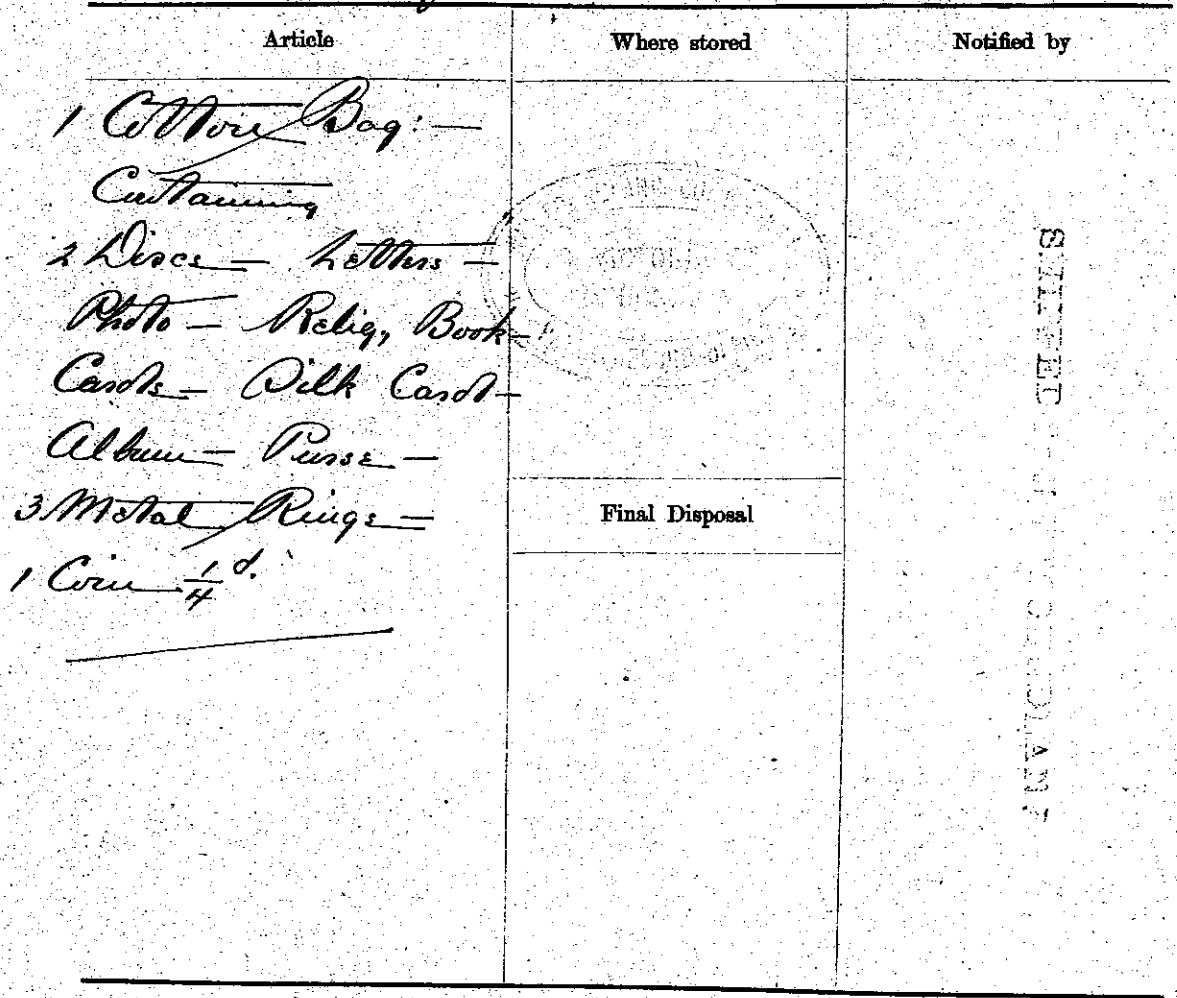 Article
Where stored
Notified by
1 Cotton Bag: —
Containing
2 Discs — Letters —
Photo — Relig, Book —
Cards — Silk Card —
Album — Purse —
3 Metal Rings —
1 Coin 1/4 d.
Final Disposal